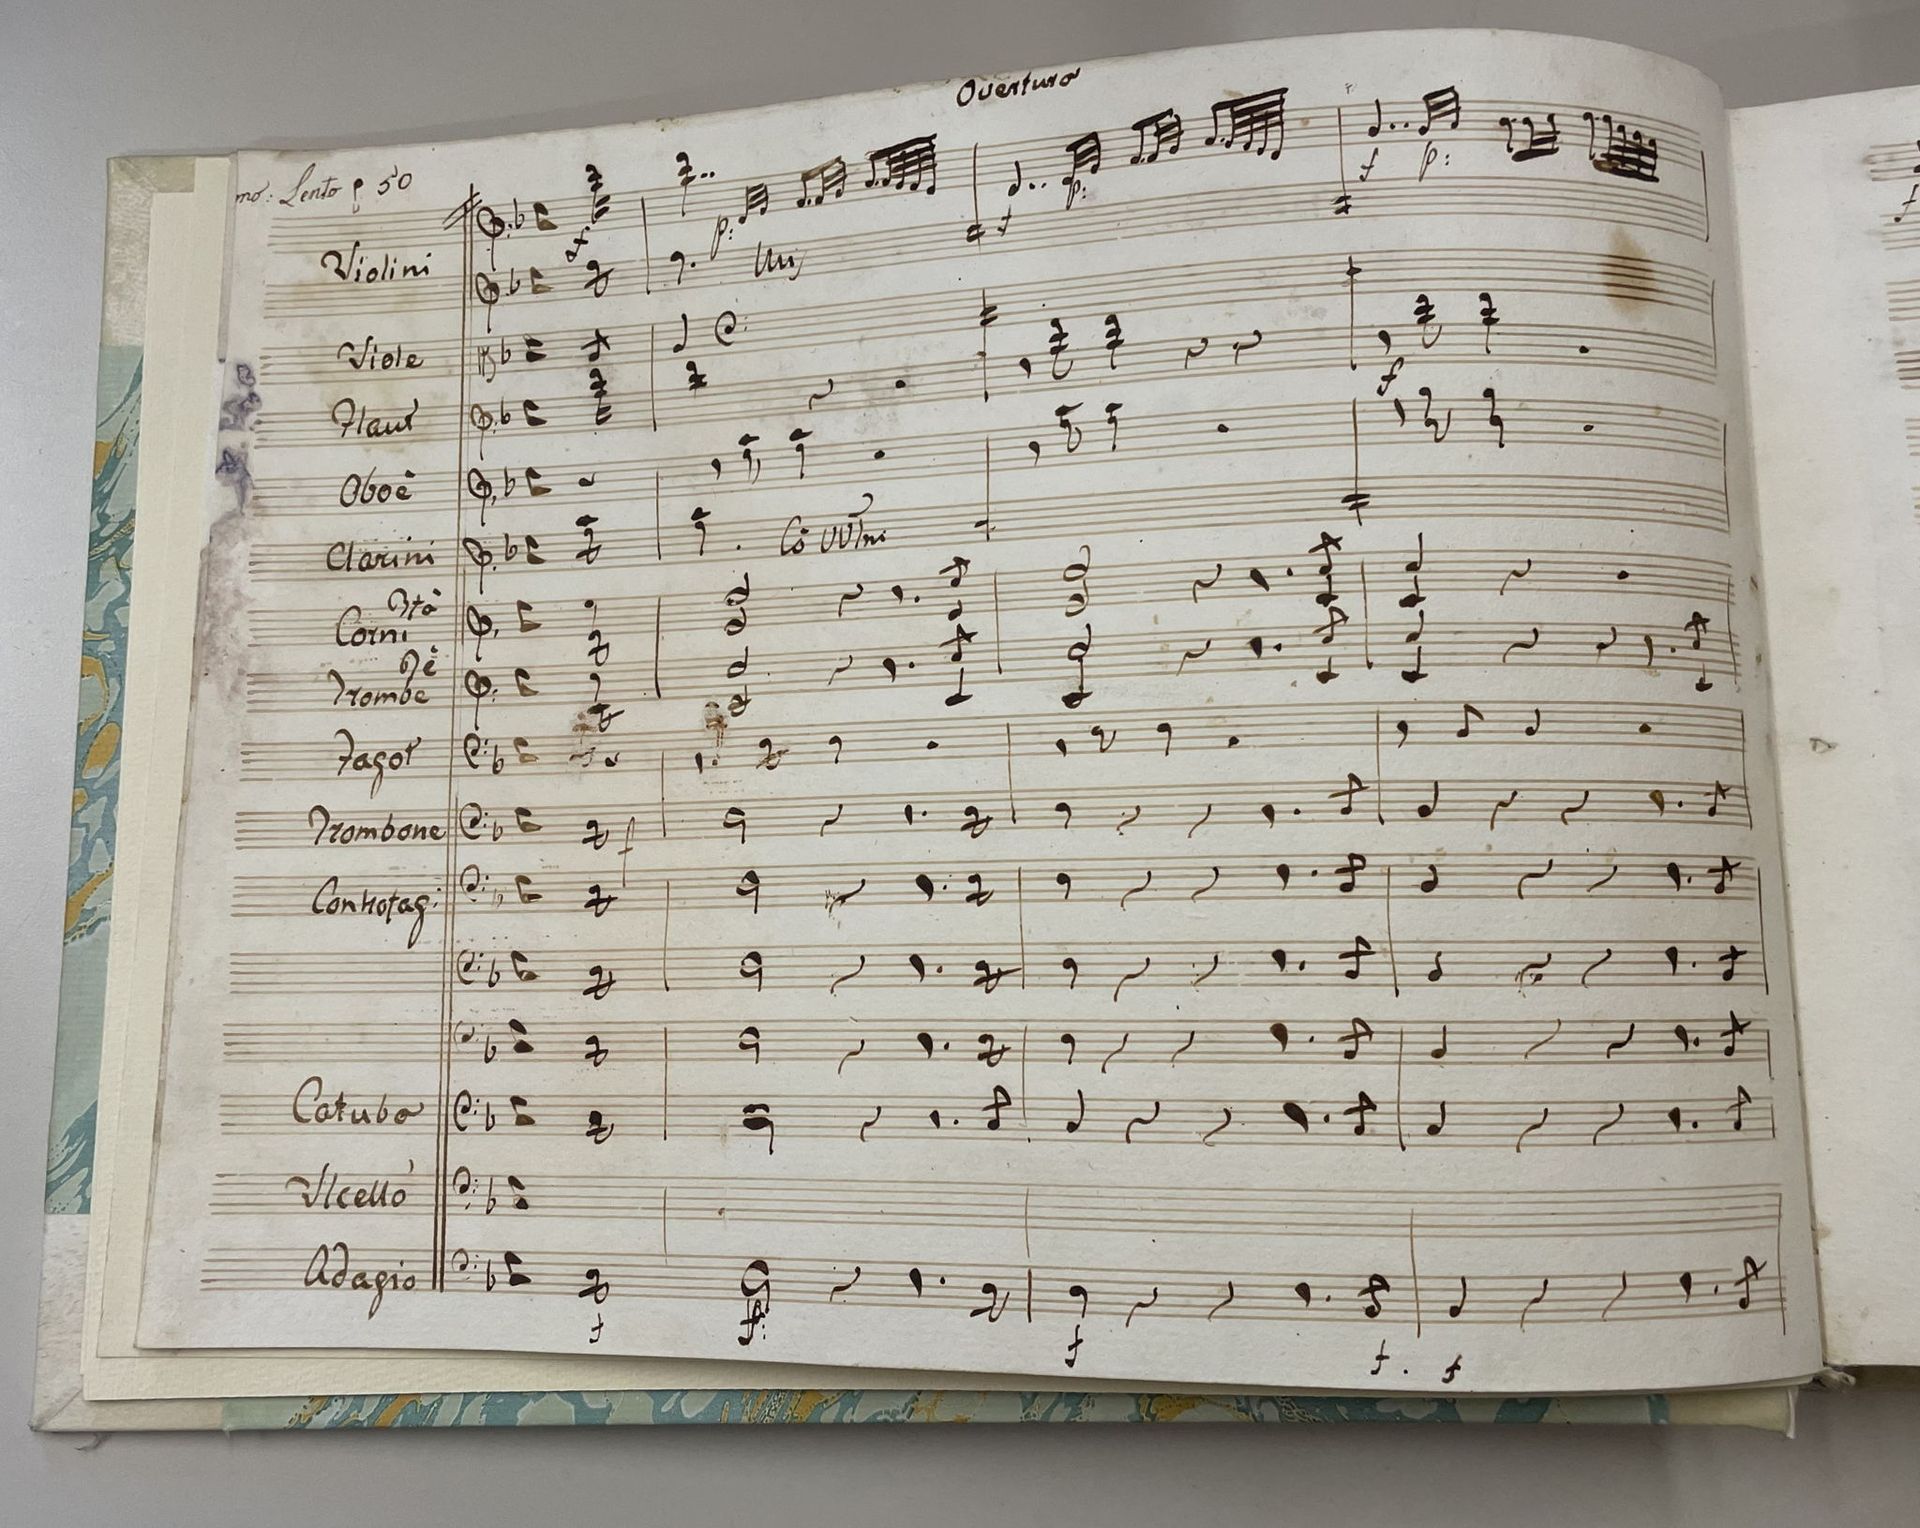 Overtura
mo: Lento 50
Violini
p:
f
p:
f
p:
Unis
Viole
f
Flaut
Oboè
Clarini
Cô VVlni
Corni
Trombe
Fagot
Trombone
f
Contrafag:
Catuba
Vlcello
Adagio
f
f:
f
f.
f